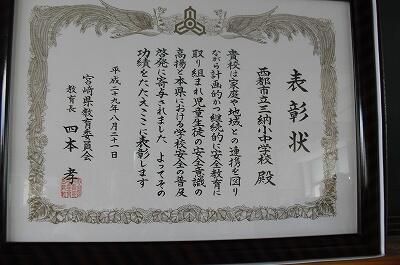 表彰状
西都市立三納小中学校 殿
貴校は家庭や地域との連携を図り
ながら計画的かつ継続的に安全教育に
取り組まれ児童生徒の安全意識の
高揚と本県における学校安全の普及
啓発に寄与されました よってその
功績をたたえここに表彰します
平成二十九年八月二十一日
宮崎県教育委員会
教育長 四本 孝